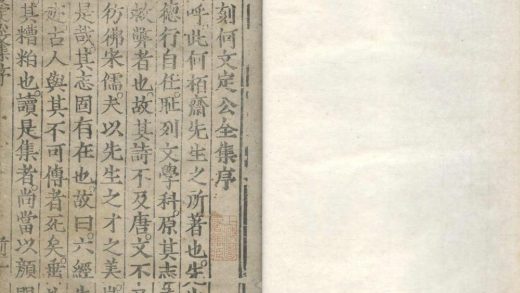 刻何文定公全集序
呼此何栢齋先生之所著也先生
德行自任耻列文學科原其志
救弊者也故其詩不及唐文不
彷彿宋儒夫以先生之才之美
是哉其志固有在也故曰六經
迹古人與其不可傳者死矣
其糟粕也讀是集者尚當以顔閔
集序 前一